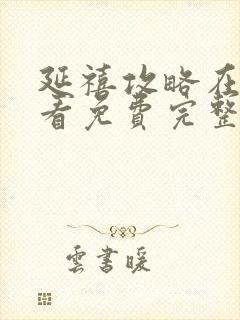 延禧攻略在
看免费完整
雲書暖